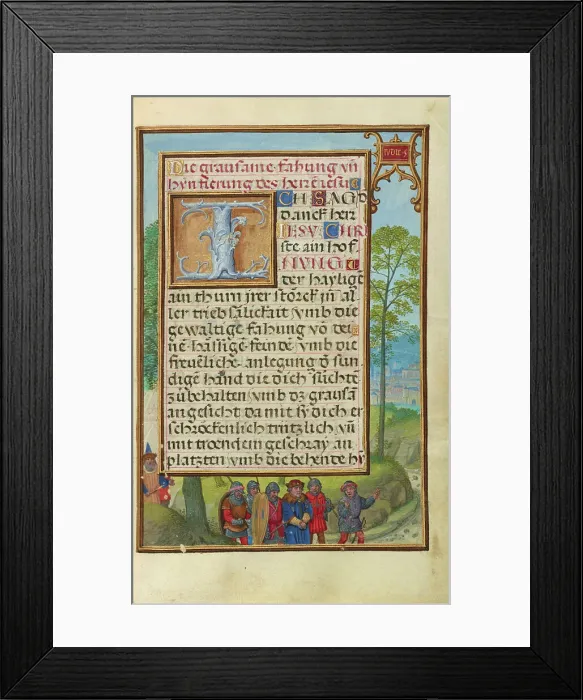 IVDIC 5
Die grausame fahung vn̄
hynfierung des herrē iesu
ICH SAG D
danck herr
IESV CHRI
ste ain hof
NVNG
der haylige
ain thurn jrer störck jn al
ler triebsälickait vmb die
gewaltige fahung vō dei
nē hässigē feinde vmb die
freuēliche anlegung d̄ sun
digē händ die dich süchtē
zübehalten vmb dz grausā
angesicht da mit sy dich er
schrockenlich trützlich vn̄
mit troendem geschray an
platzten vmb die behende hy